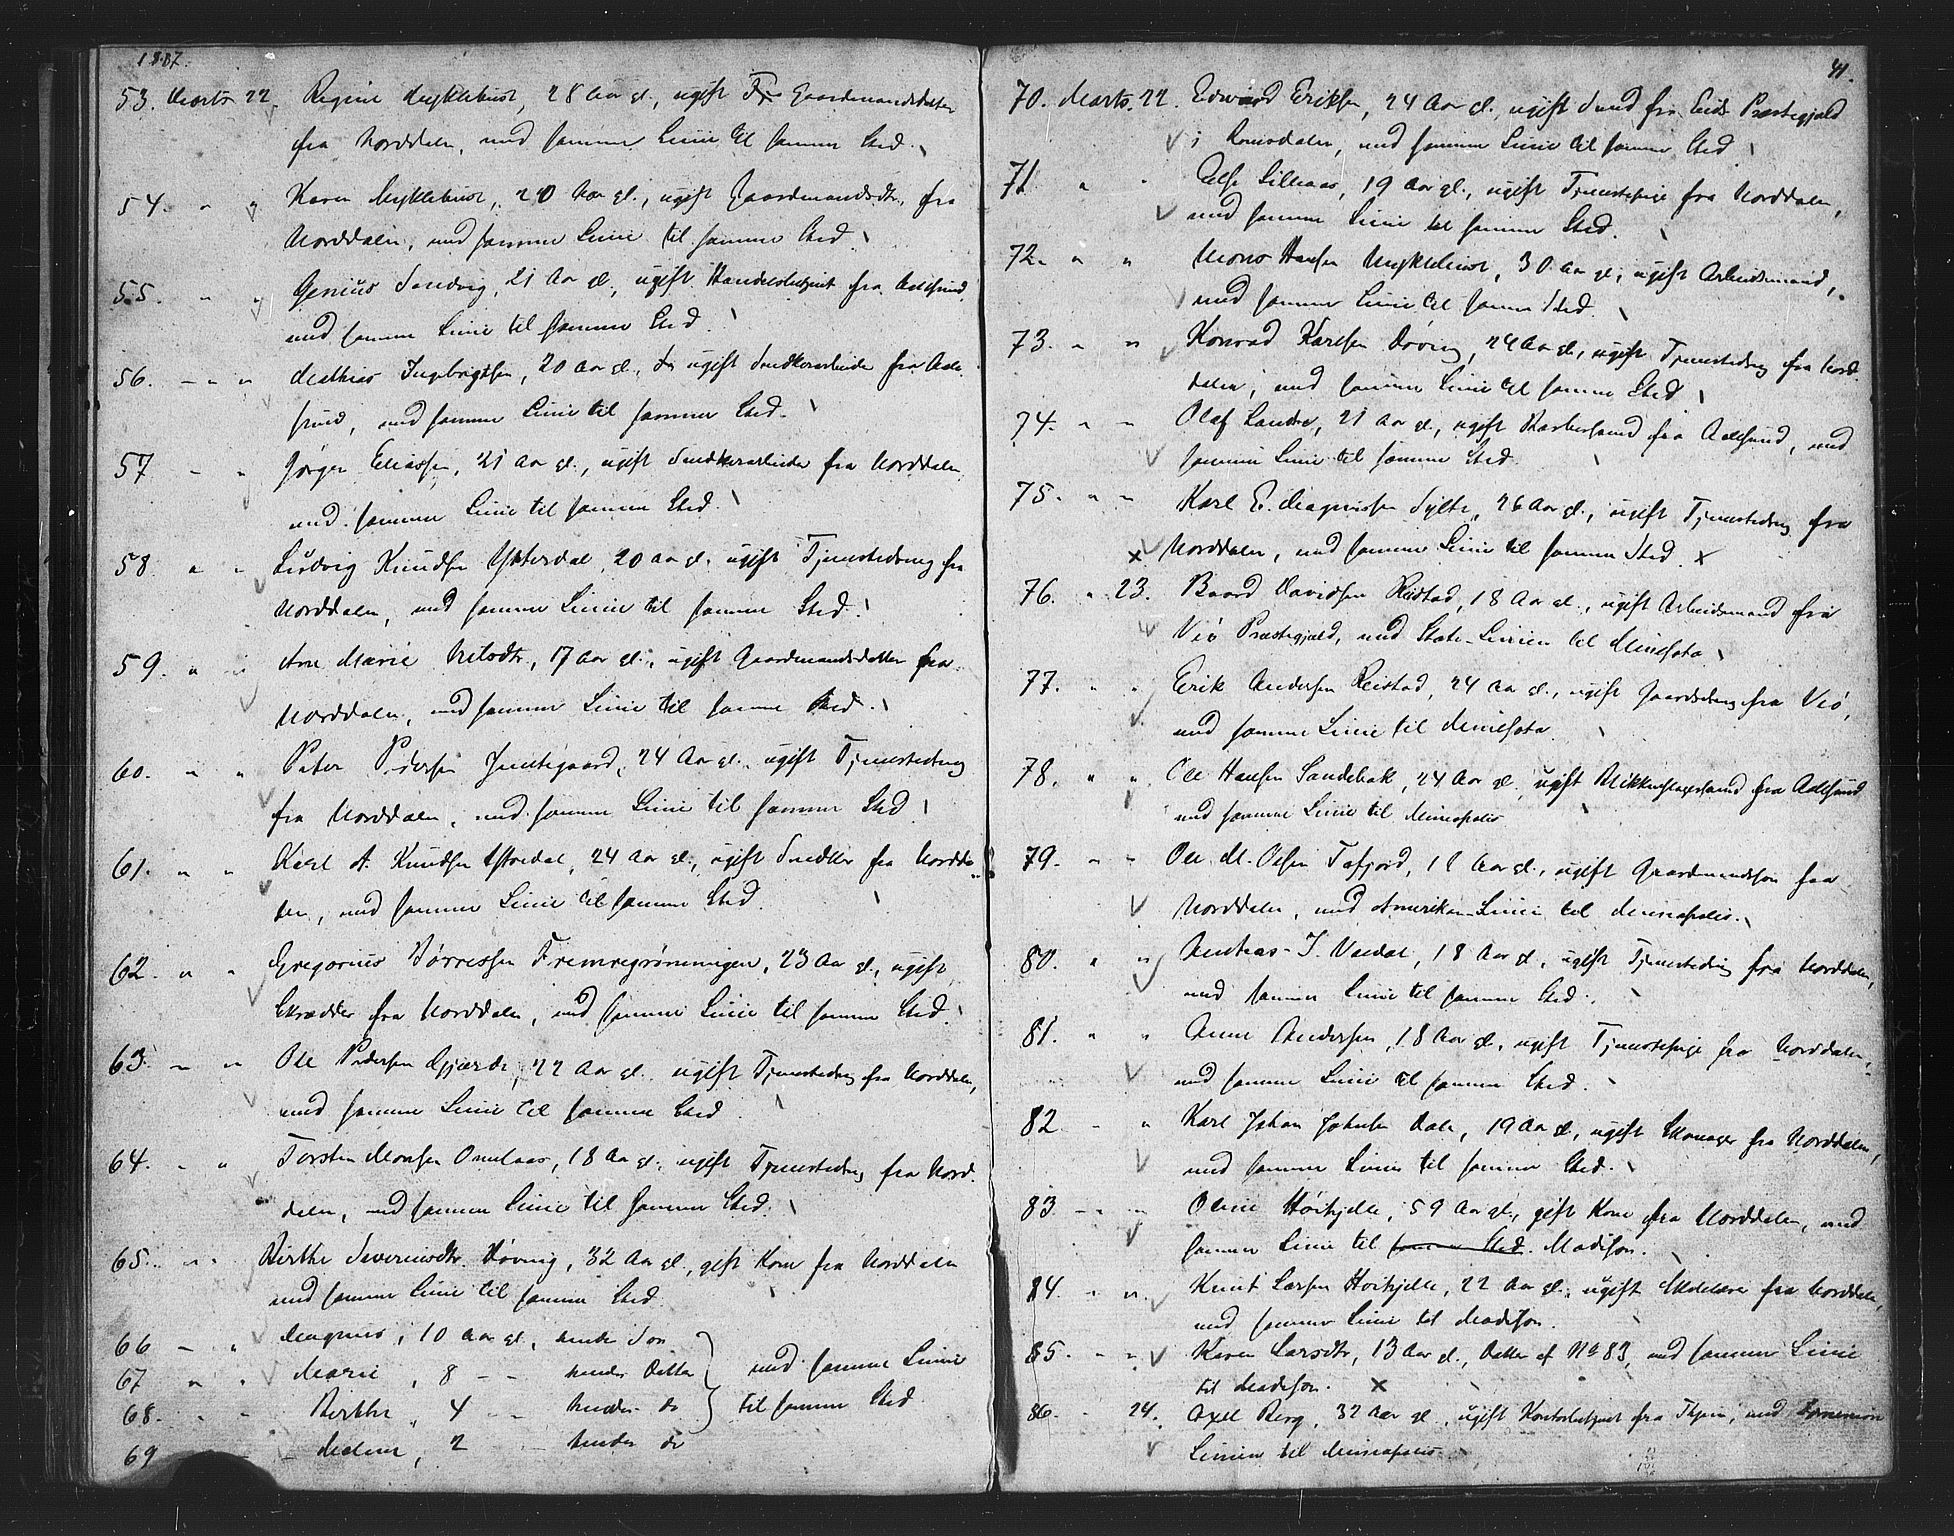 1887.
53. Marts 22. Regine Myklebust, 28 Aar gl., ugift Gaardmandsdatter
fra Norddalen, med samme Linie til samme Sted.
54. " " Karen Myklebust, 20 Aar gl., ugift Gaardmandsdtr. fra
Norddalen, med samme Linie til samme Sted.
55. " " Genius Sandvig, 21 Aar gl., ugift Handelsbetjent fra Aalesund
med samme Linie til samme Sted.
56. " " Mathias Ingebrigtsen, 20 Aar gl., ugift Snedkerarbeider fra Aale-
sund, med samme Linie til samme Sted.
57 " " Jørgen Eliassen, 21 Aar gl., ugift Snedkerarbeider fra Norddalen
med samme Linie til samme Sted.
58 " " Ludvig Knudsen Yttersdal, 20 Aar gl. ugift Tjenestedreng fra
Norddalen, med samme Linie til samme Sted.
59. " " Ane Marie Nilsdtr, 17 Aar gl., ugift Gaardmandsdatter fra
Norddalen, med samme Linie til samme Sted.
60. " " Peter Pedersen 24 Aar gl. ugift Tjenestedreng
fra Norddalen, med samme Linie til samme Sted.
61. " " Karl A. Knudsen 24 Aar gl., ugift Snedker fra Nordda-
len, med samme Linie til samme Sted.
62. " " Gregorius Børressen Fremregrønningen, 23 Aar gl., ugift
Skrædder fra Norddalen, med samme Linie til samme Sted.
63. " " Ole Pedersen Gjærde, 22 Aar gl. ugift Tjenestedreng fra Norddalen,
med samme Linie til samme Sted.
64. " " Torsten Monsen Omelaas, 18 Aar gl., ugift Tjenestedreng fra Nord-
dalen, med samme Linie til samme Sted.
65. " " Birthe Severinsdtr. Døving, 32 Aar gl., gift Kone fra Norddalen
med samme Linie til samme Sted.
66 " " Magnus, 10 Aar gl., hendes Søn
67 " " Marie, 8 " " hendes Datter med samme Linie
68. " " Birthe, 4 " " hendes do til samme Sted.
69 " 2 " hendes do
41.
70. Marts. 22. Edvard Eriksen, 24 Aar gl., ugift Smed fra Eids Præstegjæld
i Romsdalen, med samme Linie til samme Sted
71. " " Else Lillaas, 19 Aar gl., ugift Tjenestepige fra Norddalen,
med samme Linie til samme Sted.
72. " " Mons Hansen Myklebust, 30 Aar gl., ugift Arbeidsmand,
med samme Linie til samme Sted.
73. " " Konrad Karlsen Døving, 24 Aar gl., ugift Tjenestedreng fra Nord-
dalen, med samme Linie til samme Sted
74. " " Olaf Landre, 21 Aar gl., ugift Barbersvend fra Aalesund, med
samme Linie til samme Sted.
75. " " Karl E. Magnussen Sylte, 26 Aar gl., ugift Tjenestedreng fra
x Norddalen, med samme Linie til samme Sted. x
76. " 23. Baard Davidsen Reistad, 18 Aar gl., ugift Arbeidsmand fra
Veø Præstegjæld, med State-Linien til Minesota
77. " " Erik Andersen Reistad, 24 Aar gl., ugift Gaardsdreng fra Veø,
med samme Linie til Minesota
78. " " Ole Hansen Sandebak, 24 Aar gl. ugift Blikkenslagersvend fra Aalesund
med samme Linie til Mineapolis
79. " " Ole M. Olsen Tafjord, 18 Aar gl., ugift Gaardmandssøn fra
Norddalen, med Amerikan-Linien til Mineapolis.
80. " " Andreas I. Valdal, 18 Aar gl., ugift Tjenestedreng fra Norddalen,
med samme Linie til samme Sted.
81. " " Anne Andersen, 18 Aar gl., ugift Tjenestepige fra Norddalen,
med samme Linie til samme Sted.
82 " " Karl Johan Johnsen Dale, 19 Aar gl., ugift Skomager fra Norddalen,
med samme Linie til samme Sted.
83 " " Oline Høihjelle, 59 Aar gl., gift Kone fra Norddalen, med
samme Linie til samme Sted. Madison.
84. " " Knut Larsen Høihjelle, 22 Aar gl., ugift Skolelærer fra Norddalen,
med samme Linie til Madison.
85. " " Karen Larsdtr, 13 Aar gl., Datter af No 83, med samme Linie
til Madison. x
86. " 24. Axel Berg, 32 Aar gl., ugift Kontorbetjent fra Thjem, med
Linien til Mineapolis.